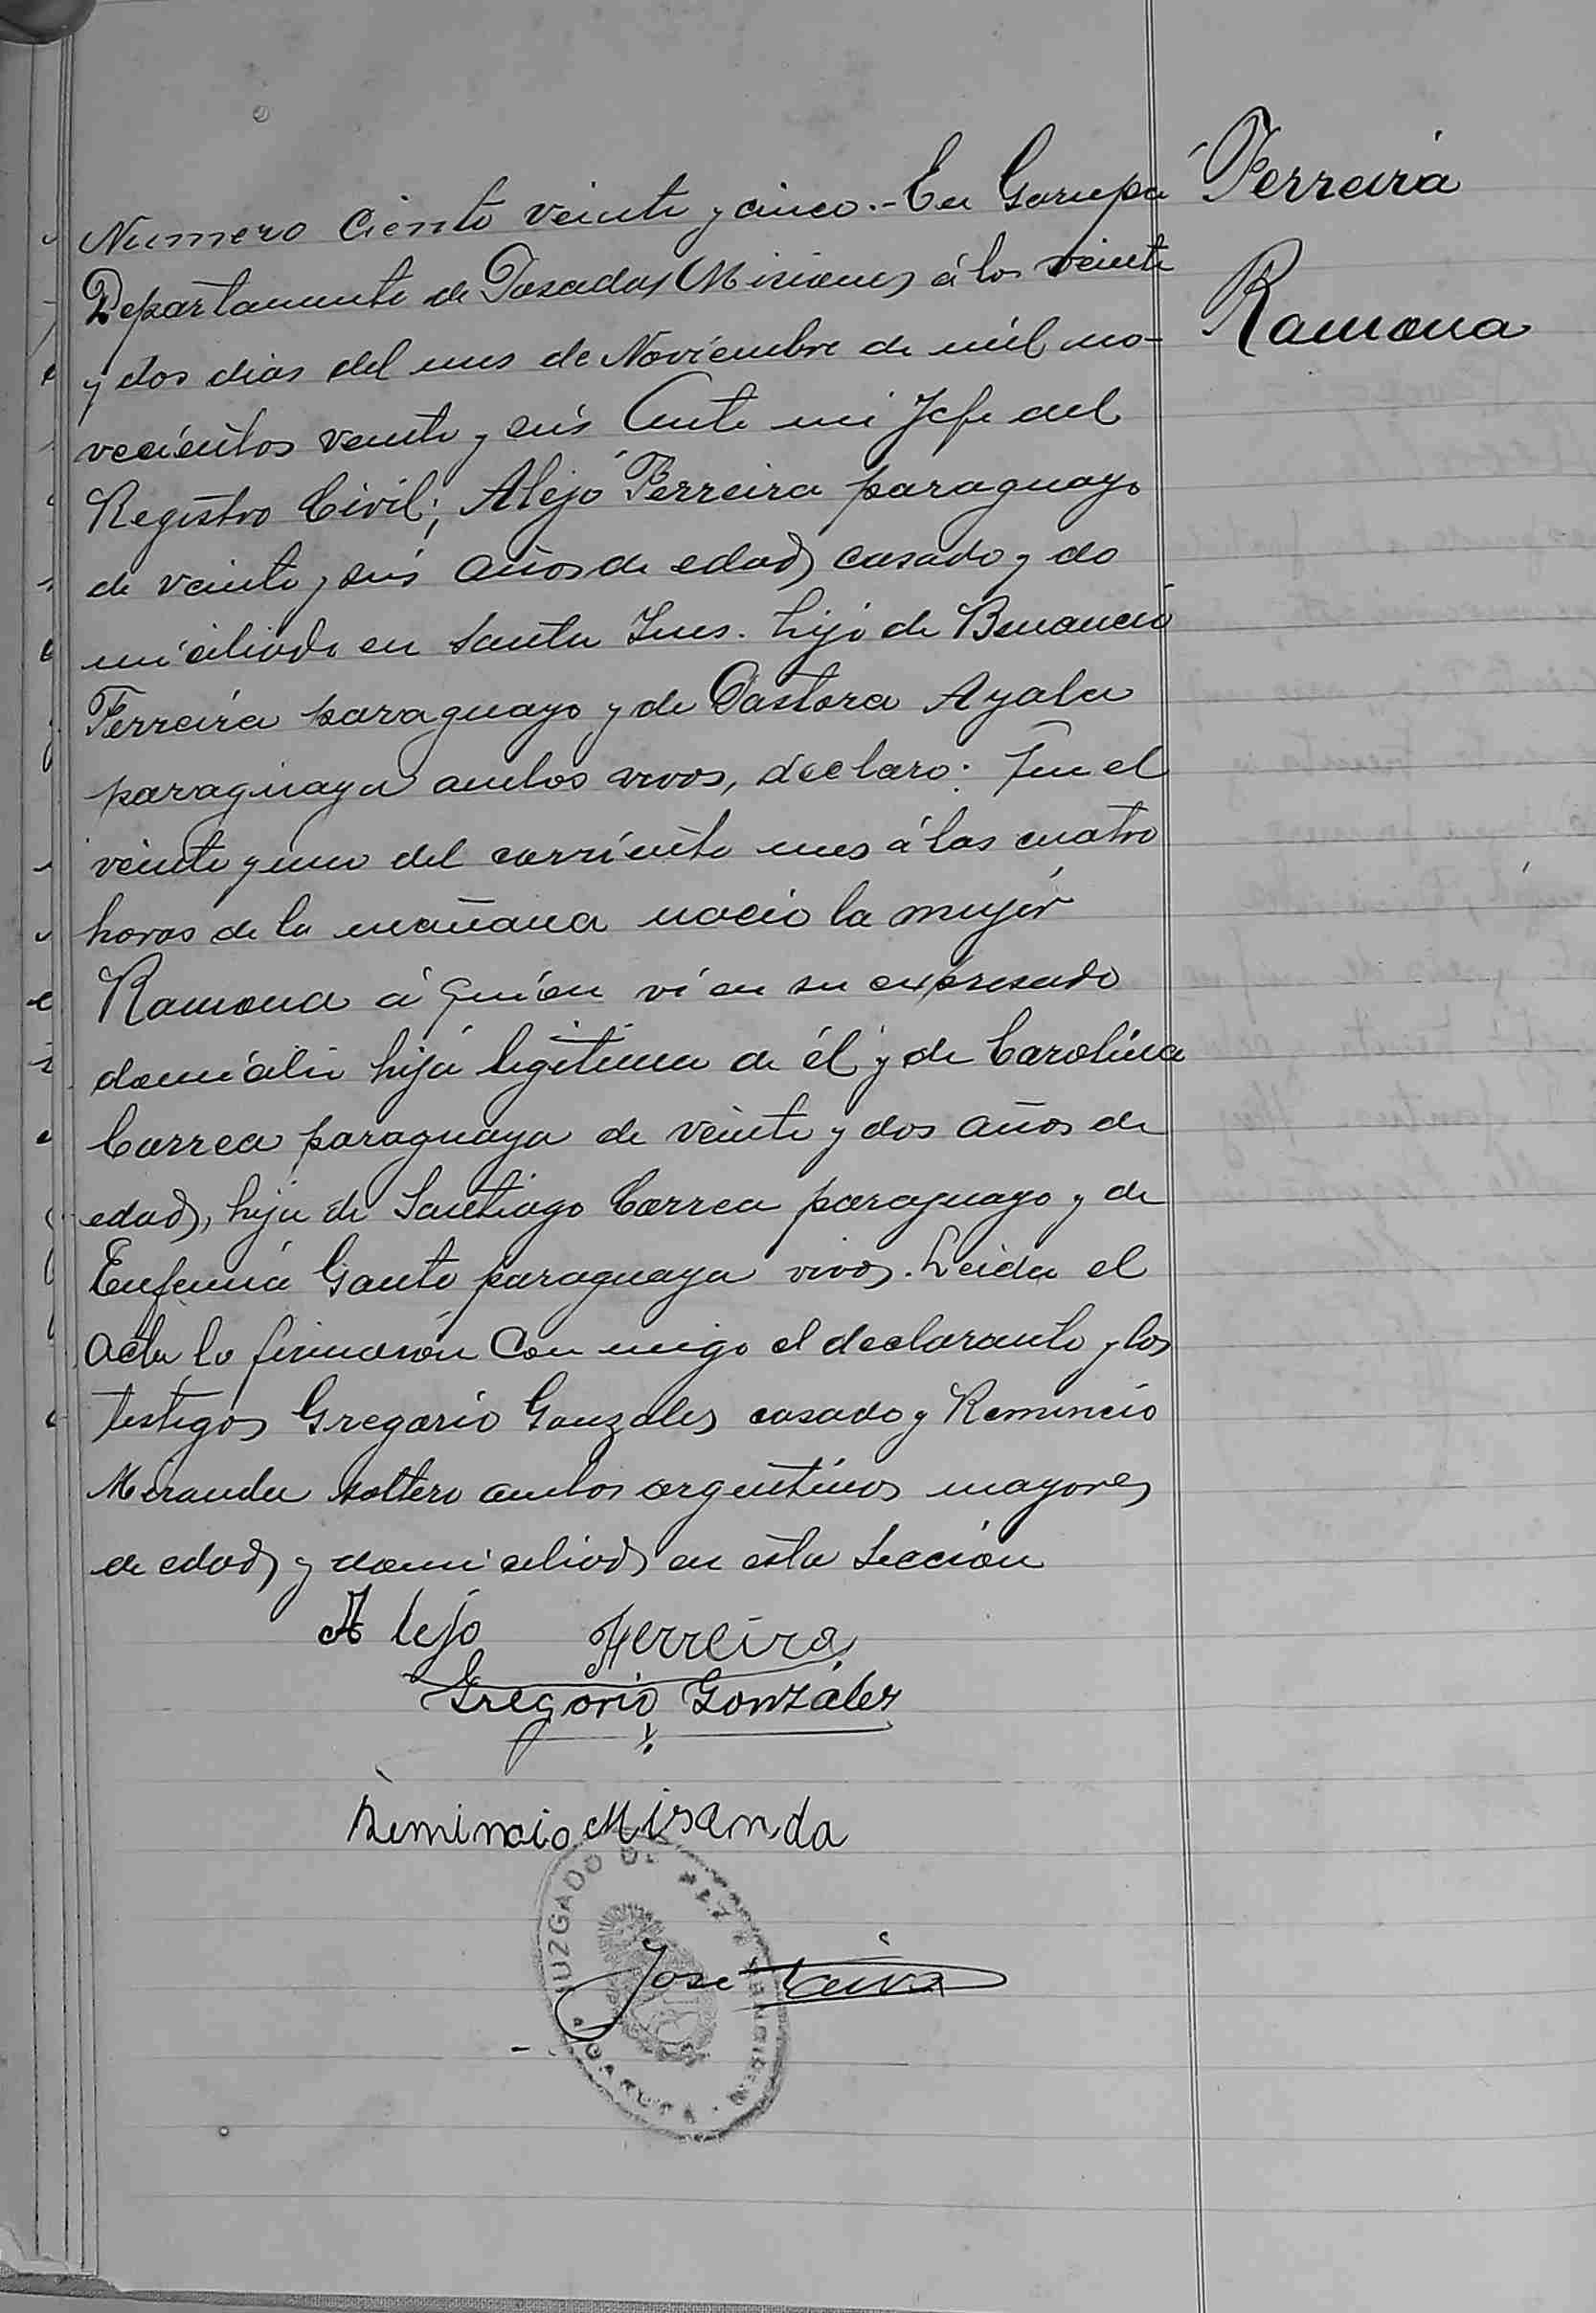 Ferreira
Ramona
Numero Ciento veinte y cinco.- En Garupa
Departamento de Posadas Misiones á los veinte
y dos dias del mes de Noviembre de mil no-
vecientos veinte y seis Ante mi Jefe del
Registro Civil; Alejo Ferreira paraguayo
de veinte y seis años de edad casado y do
miciliado en Santa Ines. hijo de Benancio
Ferreira paraguayo y de Pastora Ayala
paraguaya ambos vivos, declaro: que el
veinte y uno del corriente mes á las cuatro
horas de la mañana nacio la mujer
Ramona á quien vi en su expresado
domicilio hija legitima de él y de Carolina
Correa paraguaya de veinte y dos años de
edad, hija de Santiago Correa paraguayo y de
Eufemia Gauto paraguaya vivos. Leida el
acta la firmaron Con migo el declarante y los
testigos Gregorio Gonzales casado y Remincio
Miranda soltero ambos argentinos mayores
de edad y domiciliados en esta Sección
Alejo Ferreira
Gregorio Gonzáles
Remincio Miranda
JUZGADO DE PAZ
José